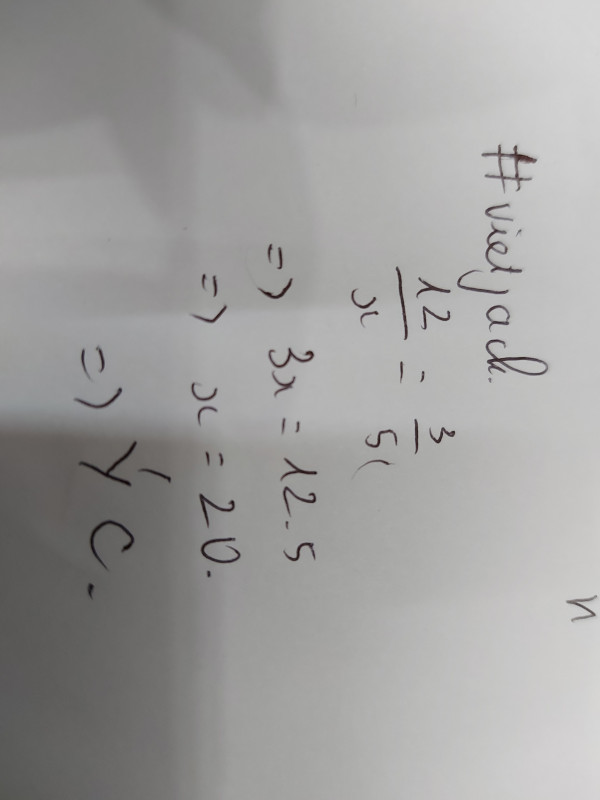 #vietjack.
12/x = 3/5
=> 3x = 12.5
=> x = 20.
=> Ý C.